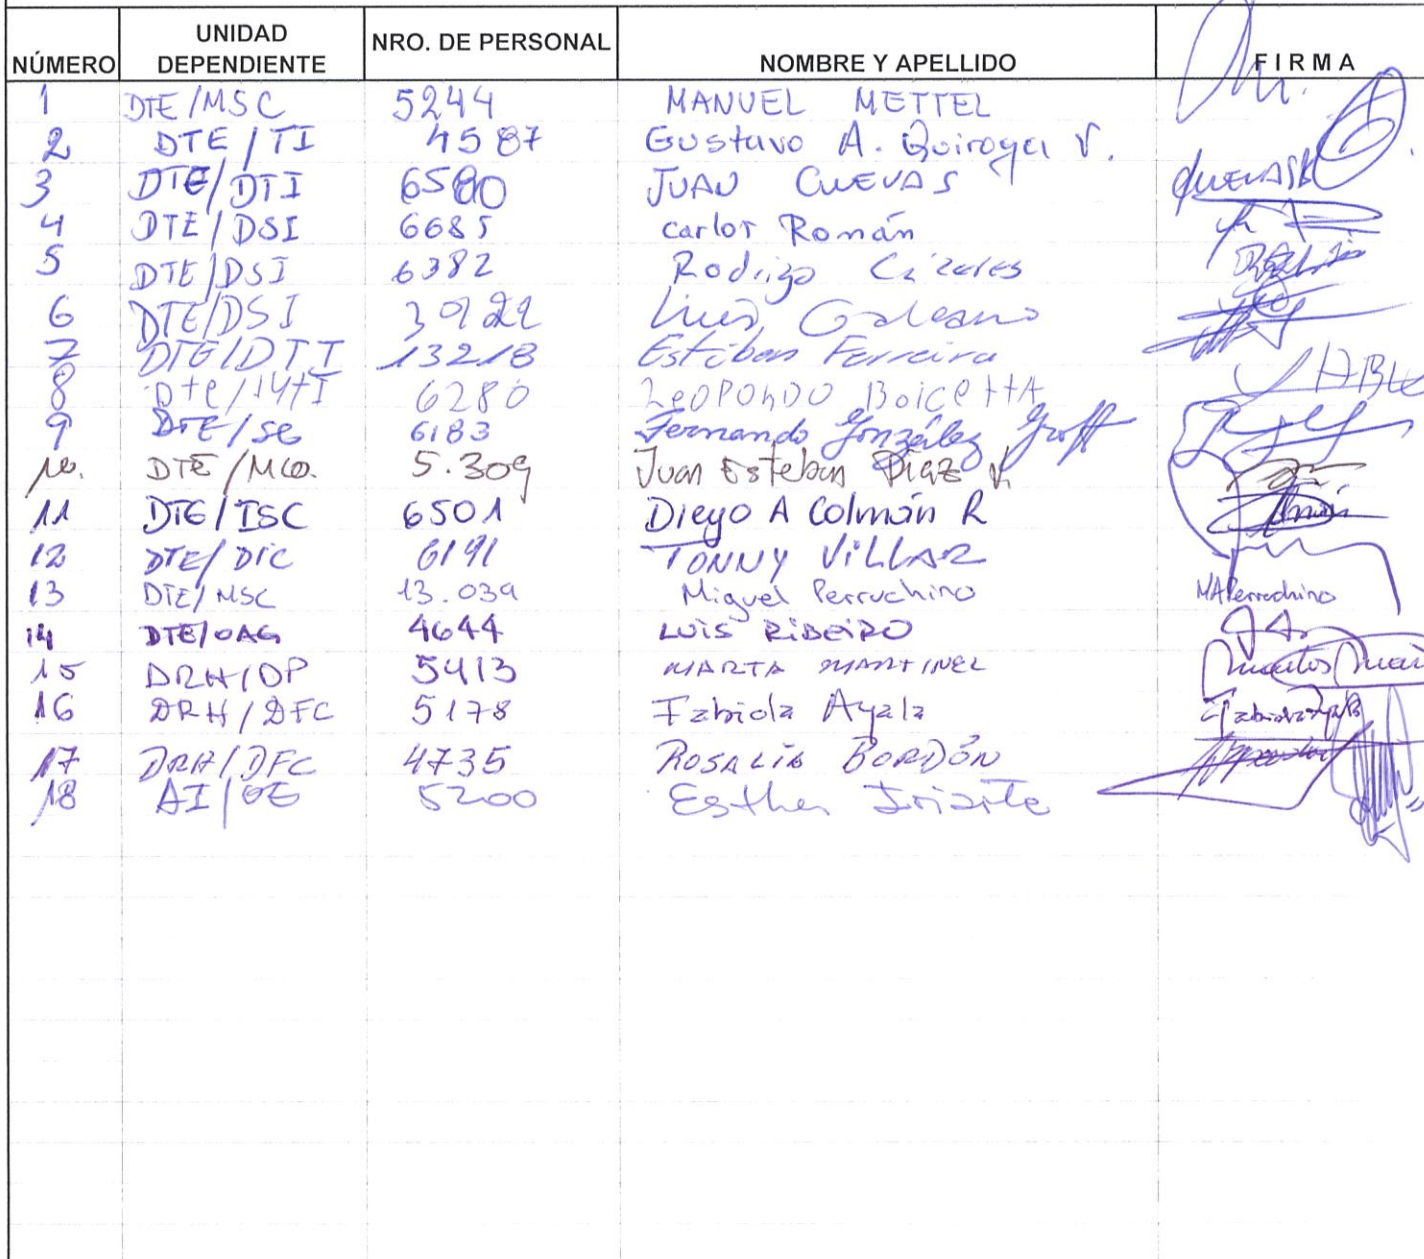 NÚMERO UNIDAD DEPENDIENTE NRO. DE PERSONAL NOMBRE Y APELLIDO FIRMA
1 DTE/MSC 5244 MANUEL METTEL
2 DTE/TI 4587 Gustavo A. Quiroga V.
3 DTE/DTI 6580 JUAN CUEVAS
4 DTE/DSI 6685 Carlos Román
5 DTE/DSI 6382 Rodrigo Cázeres
6 DTE/DSI 3922 Luis Galeano
7 DTE/DTI 13218 Estiban Ferreira
8 Dte/ 6280 LeOPOLDO
9 DTE/SE 6183 Fernando González Groff
10. DTE/ 5.309 Juan Esteban Díaz V.
11 DTE/ISC 6501 Diego A Colmán R
12 DTE/DIC 6191 TONNY VILLAR
13 DTE/MSC 13.039 Miguel Perruchino MAPerruchino
14 DTE/OAG 4644 LUIS RIBEIRO
15 DRH/DP 5413 MARTA MARTINEZ
16 DRH/DFC 5178 Fabiola Ayala
17 DRH/DFC 4735 ROSALÍA BORDÓN
18 AI/GE 5200 Esther Iriarte